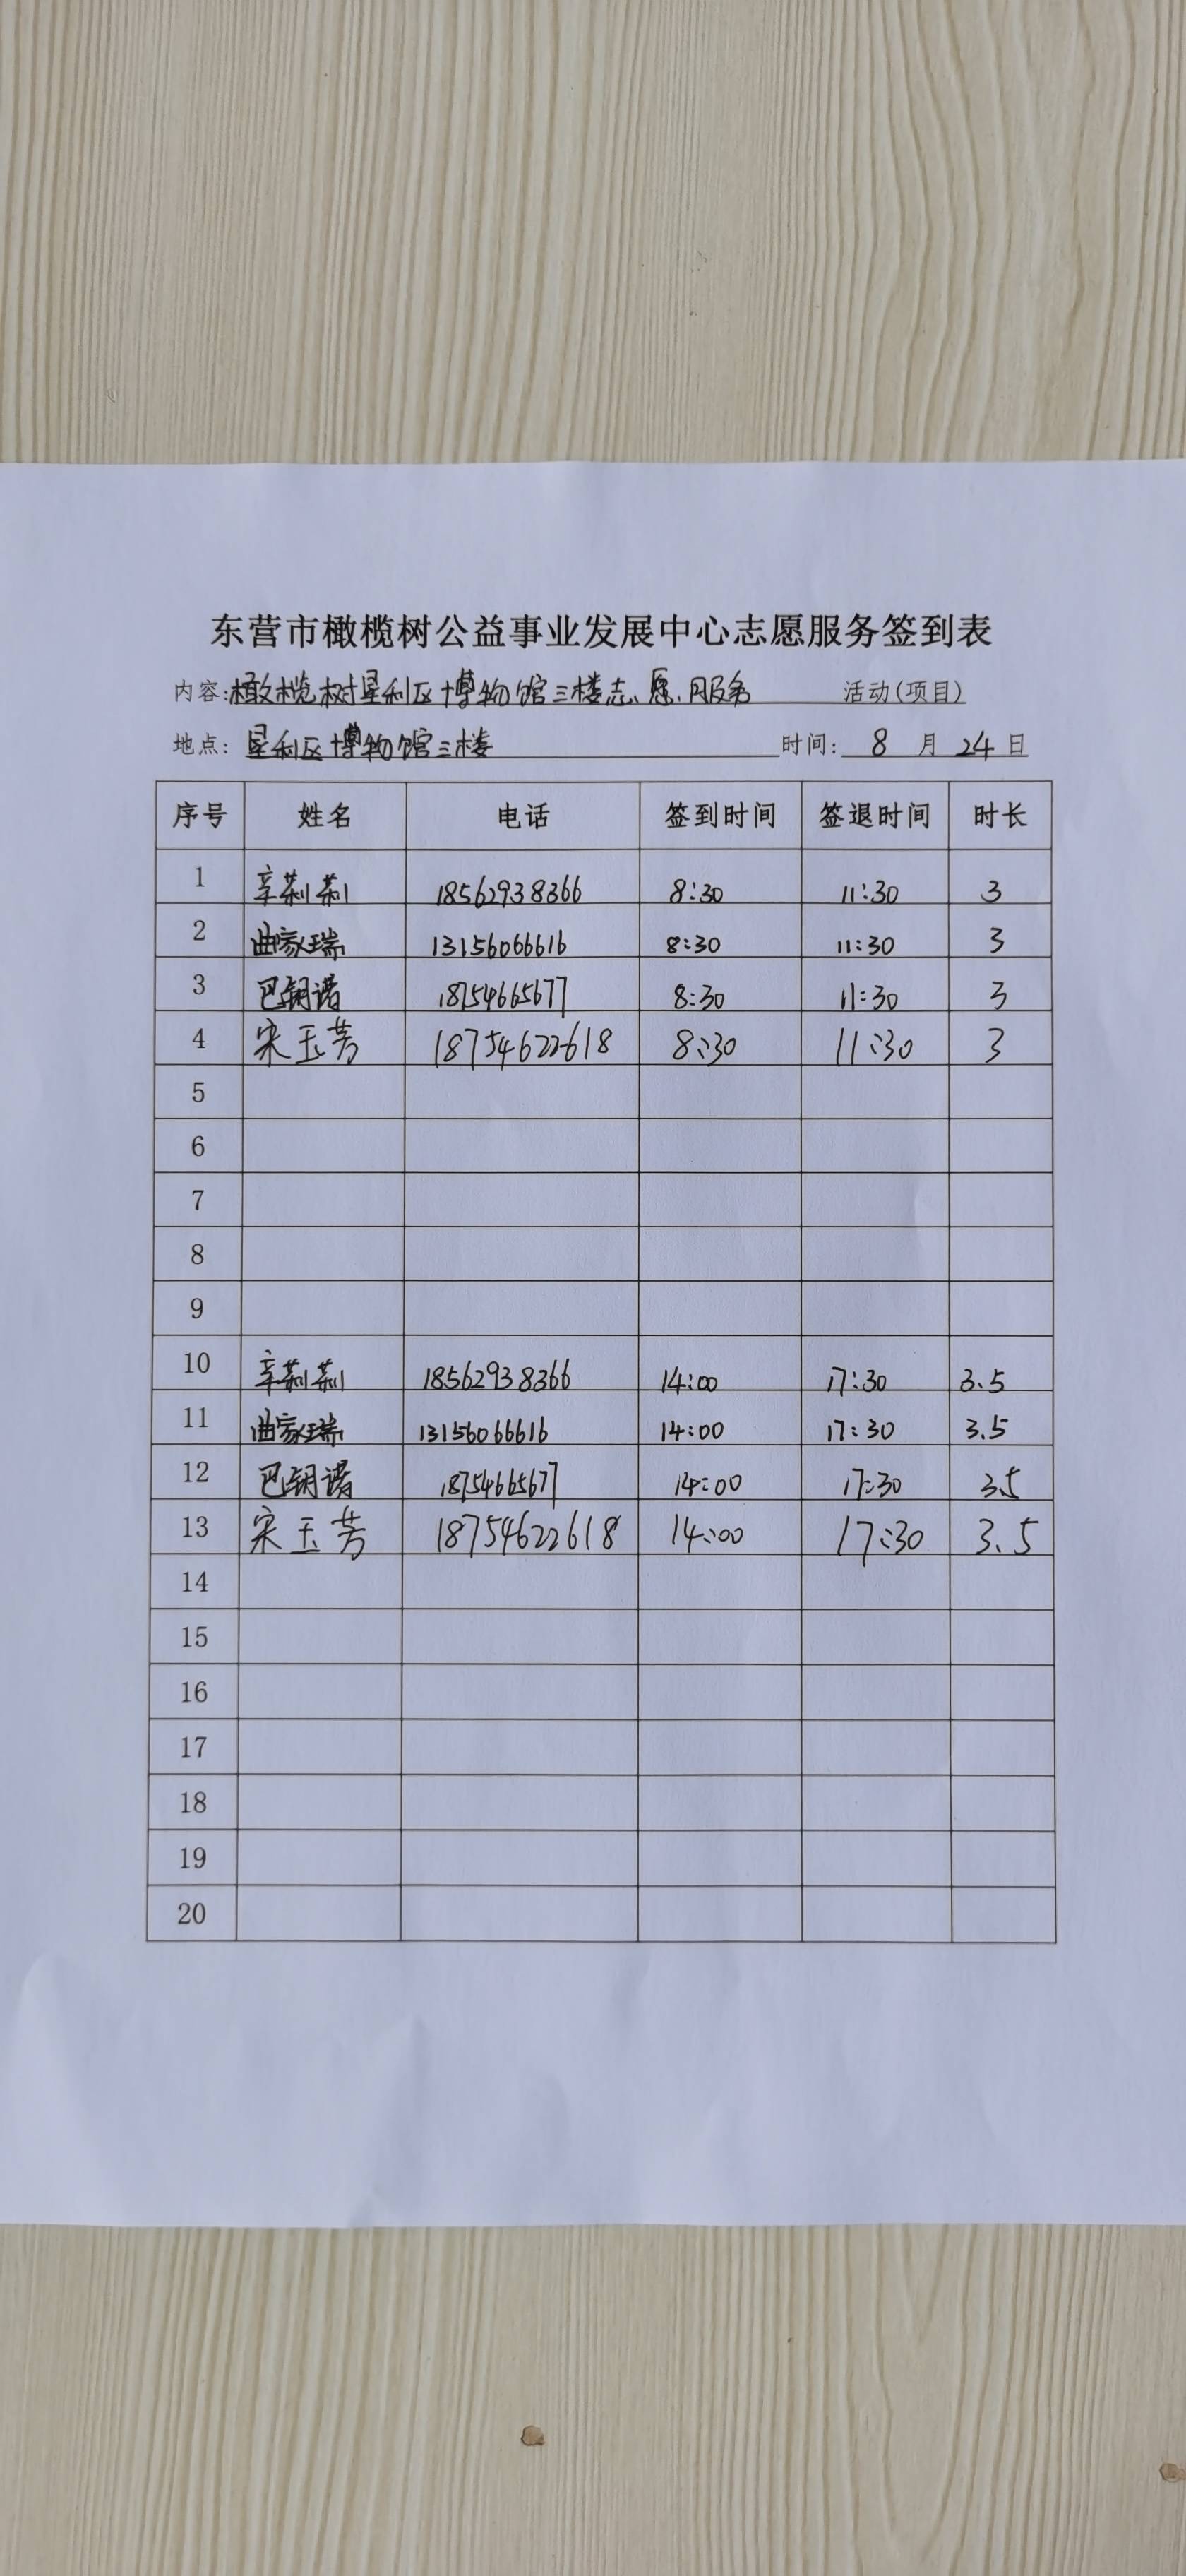 东营市橄榄树公益事业发展中心志愿服务签到表
内容:橄榄树垦利区博物馆三楼志愿服务 活动(项目)
地点: 垦利区博物馆三楼 时间: 8 月 24 日
序号 姓名 电话 签到时间 签退时间 时长
1 辛莉莉 18562938366 8:30 11:30 3
2 曲家瑞 13156066616 8:30 11:30 3
3 巴钥诺 18754665677 8:30 11:30 3
4 宋玉芳 18754622618 8:30 11:30 3
5
6
7
8
9
10 辛莉莉 18562938366 14:00 17:30 3.5
11 曲家瑞 13156066616 14:00 17:30 3.5
12 巴钥诺 18754665677 14:00 17:30 3.5
13 宋玉芳 18754622618 14:00 17:30 3.5
14
15
16
17
18
19
20